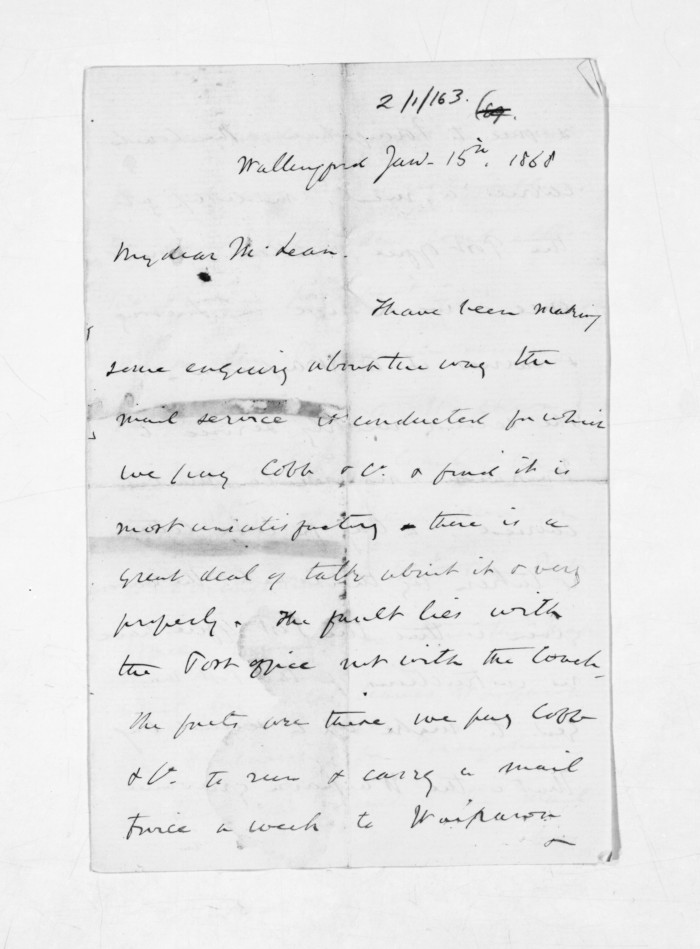 2/1/163.
Wallingford Jan. 15th. 1868
My dear McLean.
I have been making
some enquiry about the way the
mail service is conducted for which
we pay Cobb & Co. & find it is
most unsatisfactory - there is a
great deal of talk about it & very
properly. The fault lies with
the Post office not with the Coach.
The facts are these we pay Cobb
& Co. to run & carry a mail
twice a week to Waipawa